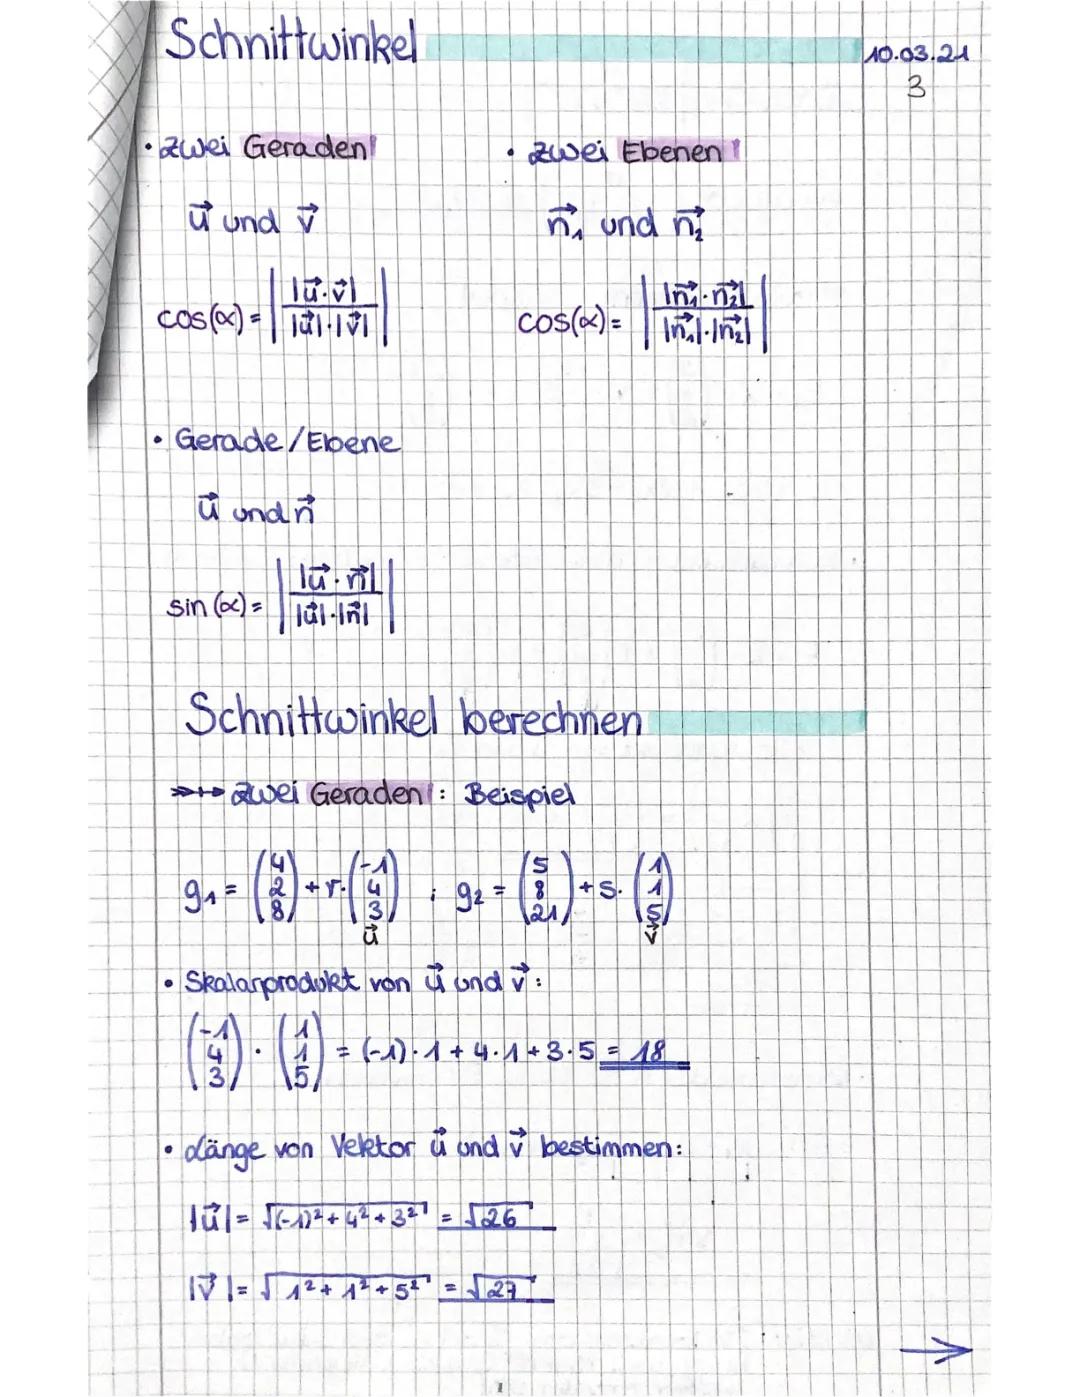 Schnittwinkel
10.03.21
3
• zwei Geraden
• zwei Ebenen
u⃗ und v⃗
n⃗₁ und n⃗₂
cos(α) = | |u⃗·v⃗| / |u⃗|·|v⃗| |
cos(α) = | |n⃗₁·n⃗₂| / |n⃗₁|·|n⃗₂| |
• Gerade/Ebene
u⃗ und n⃗
sin(α) = | |u⃗·n⃗| / |u⃗|·|n⃗| |
Schnittwinkel berechnen
→ zwei Geraden: Beispiel
g₁ = (4 2 8) + r·(-1 4 3) ; g₂ = (5 8 21) + s·(1 1 5)
u⃗ v⃗
• Skalarprodukt von u⃗ und v⃗:
(-1 4 3) · (1 1 5) = (-1)·1 + 4·1 + 3·5 = 18
• Länge von Vektor u⃗ und v⃗ bestimmen:
|u⃗| = √(-1)² + 4² + 3² = √26
|v⃗| = √1² + 1² + 5² = √27
→